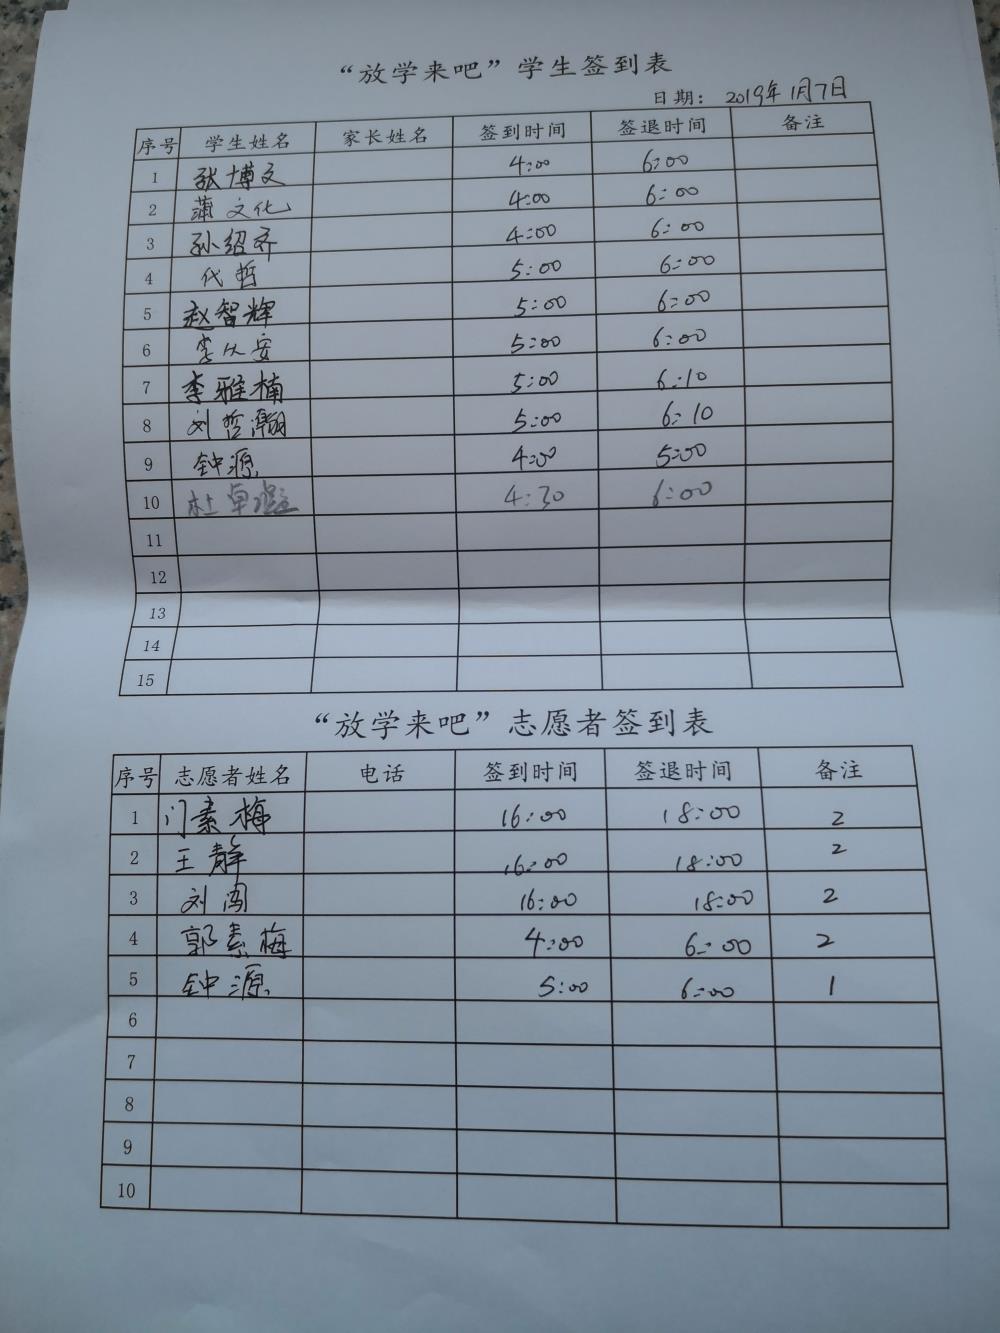 “放学来吧”学生签到表
日期： 2019年1月7日
序号 学生姓名 家长姓名 签到时间 签退时间 备注
1 张博文 4:00 6:00
2 蒲文化 4:00 6:00
3 孙绍齐 4:00 6:00
4 代哲 5:00 6:00
5 赵智辉 5:00 6:00
6 李从安 5:00 6:00
7 李雅楠 5:00 6:10
8 刘哲瀚 5:00 6:10
9 钟源 4:00 5:00
10 杜卓 4:30 6:00
11
12
13
14
15
“放学来吧”志愿者签到表
序号 志愿者姓名 电话 签到时间 签退时间 备注
1 门素梅 16:00 18:00 2
2 王静 16:00 18:00 2
3 刘闯 16:00 18:00 2
4 郭素梅 4:00 6:00 2
5 钟源 5:00 6:00 1
6
7
8
9
10